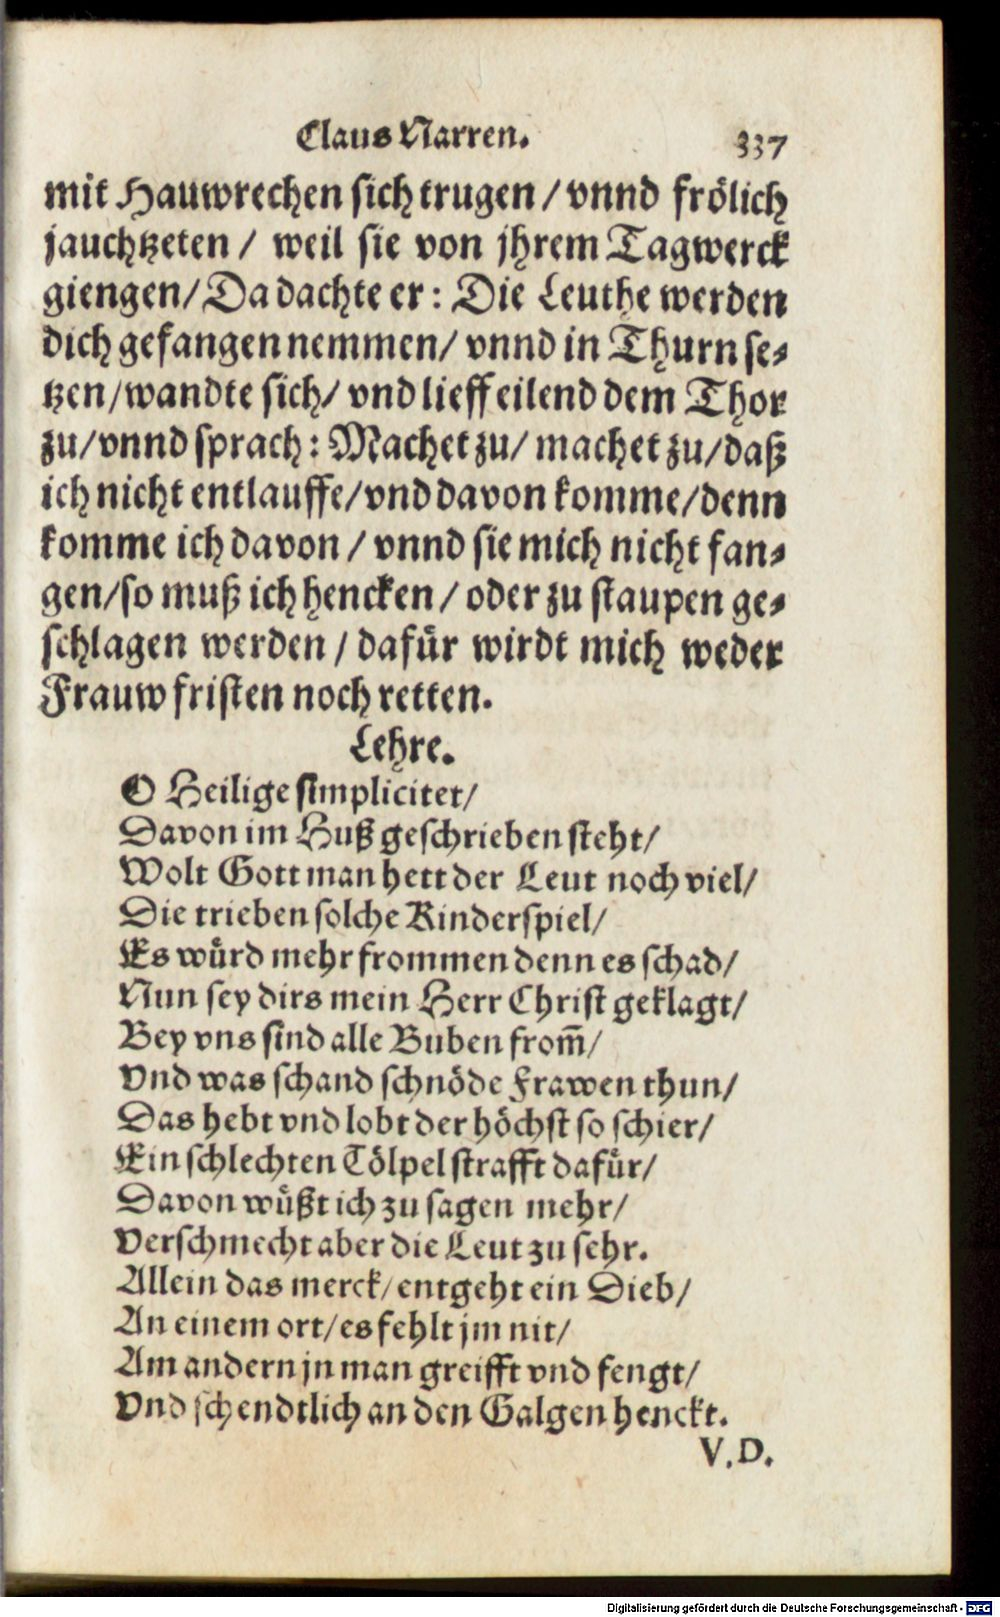 Claus Narren. 337
mit Hauwrechen sich trugen / vnnd frölich
jauchtzeten / weil sie von jhrem Tagwerck
giengen/ Da dachte er: Die Leuthe werden
dich gefangen nemmen/ vnnd in Thurn se-
tzen/wandte sich/ vnd lieff eilend dem Thor
zu/vnnd sprach: Machet zu/ machet zu/daß
ich nicht entlauffe/vnd davon komme/denn
komme ich davon / vnnd sie mich nicht fan-
gen/so muß ich hencken / oder zu staupen ge-
schlagen werden / dafür wirdt mich weder
Frauw fristen noch retten.
Lehre.
O Heilige simplicitet/
Davon im Huß geschrieben steht/
Wolt Gott man hett der Leut noch viel/
Die trieben solche Kinderspiel/
Es würd mehr frommen denn es schad/
Nun sey dirs mein Herr Christ geklagt/
Bey vns sind alle Buben from̃/
Vnd was schand schnöde Frawen thun/
Das hebt vnd lobt der höchst so schier/
Ein schlechten Tölpel strafft dafür/
Davon wüßt ich zu sagen mehr/
Verschmecht aber die Leut zu sehr.
Allein das merck/entgeht ein Dieb/
An einem ort/es fehlt jm nit/
Am andern jn man greifft vnd fengt/
Vnd schendtlich an den Galgen henckt.
V.D.
Digitalisierung gefördert durch die Deutsche Forschungsgemeinschaft - DFG